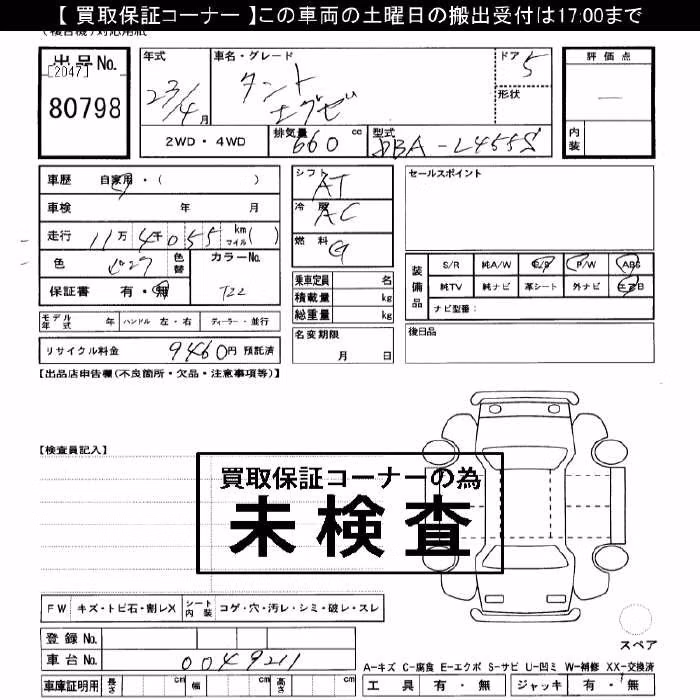 【 買取保証コーナー 】この車両の土曜日の搬出受付は17:00まで
出品No.
[2047]
80798
年式
23/4月
車名・グレード
タント
エグゼ
ドア 5
形状
評価点
内装
2WD・4WD
排気量 660 cc
型式 DBA-L455S
車歴 自家用・( )
車検 年 月
走行 11万4千055 km マイル( )
色
色替
カラーNo.
T22
保証書 有・無
モデル年式 年
ハンドル 左・右
ディーラー・並行
リサイクル料金 9460円 預託済
シフト AT
冷房 AC
燃料 G
乗車定員 名
積載量 kg
総重量 kg
名変期限
月 日
セールスポイント
装備品
S/R 純A/W P/S P/W ABS
純TV 純ナビ 革シート 外ナビ エアB
ナビ型番:
後日品
【出品店申告欄(不良箇所・欠品・注意事項等)】
【検査員記入】
買取保証コーナーの為
未検査
FW キズ・トビ石・割レX
シート内装 コゲ・穴・汚レ・シミ・破レ・スレ
登録No.
車台No. 0049211
車庫証明用 長さ cm 幅 cm 高さ cm
スペア
A-キズ C-腐食 E-エクボ S-サビ U-凹ミ W-補修 XX-交換済
工具 有・無 ジャッキ 有・無